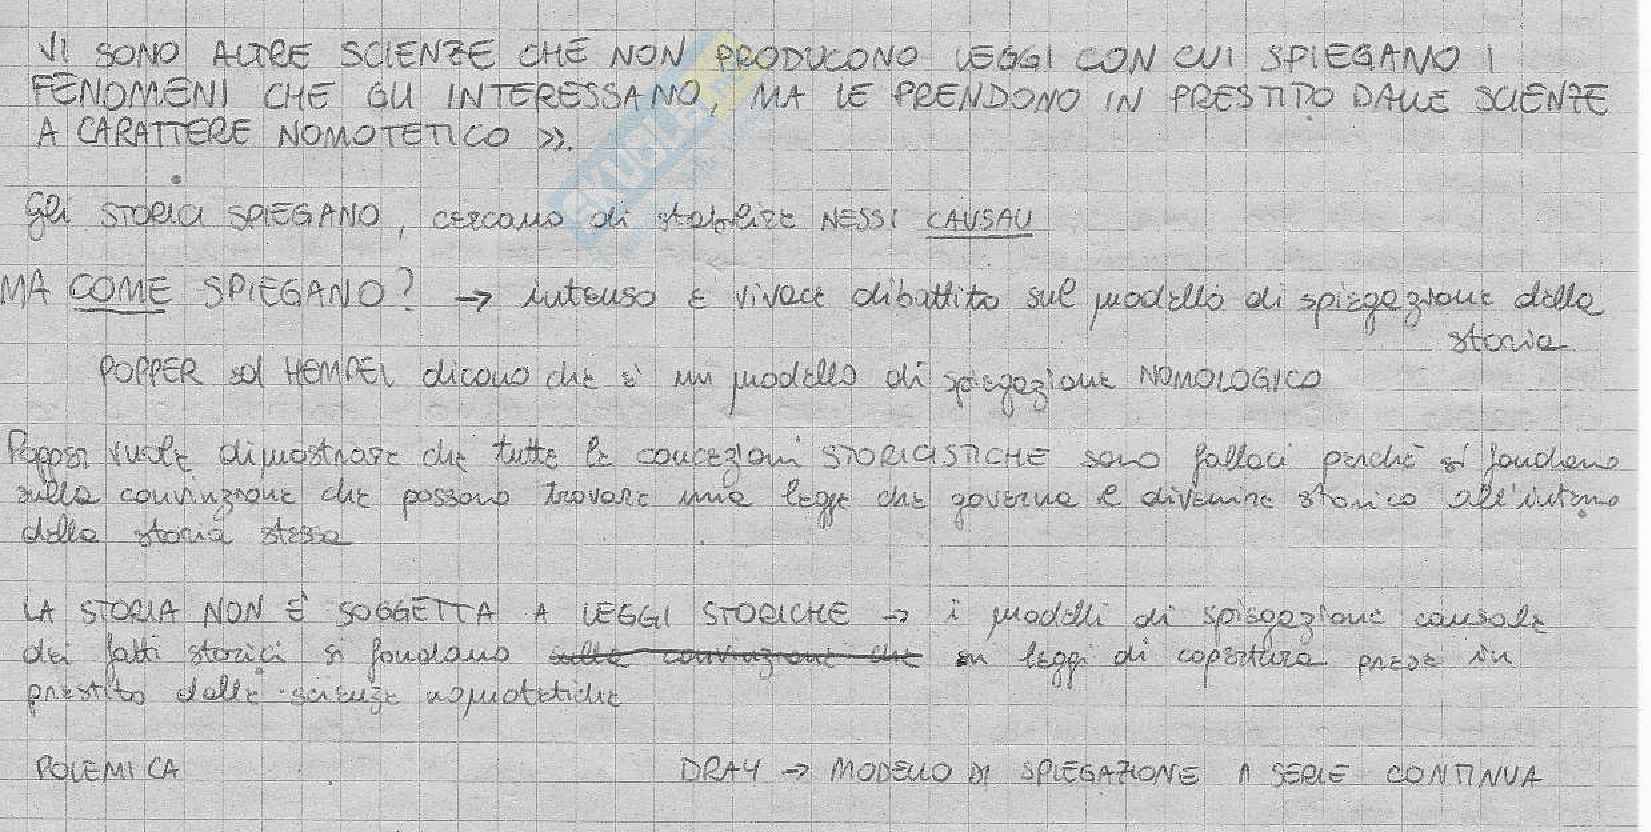 VI SONO ALTRE SCIENZE CHE NON PRODUCONO LEGGI CON CUI SPIEGANO I
FENOMENI CHE GLI INTERESSANO, MA LE PRENDONO IN PRESTITO DALLE SCIENZE
A CARATTERE NOMOTETICO >>.
Gli STORICI SPIEGANO, cercano di stabilire NESSI CAUSALI
MA COME SPIEGANO? → intenso e vivace dibattito sul modello di spiegazione della
storia
POPPER ed HEMPEL dicono che è un modello di spiegazione NOMOLOGICO
Popper vuole dimostrare che tutte le concezioni STORICISTICHE sono fallaci perché si fondano
sulla convinzione che possono trovare una legge che governa il divenire storico all'interno
della storia stessa
LA STORIA NON È SOGGETTA A LEGGI STORICHE → i modelli di spiegazione causale
dei fatti storici si fondano sulla convinzione che su leggi di copertura prese in
prestito dalle scienze nomotetiche
POLEMICA DRAY → MODELLO DI SPIEGAZIONE A SERIE CONTINUA